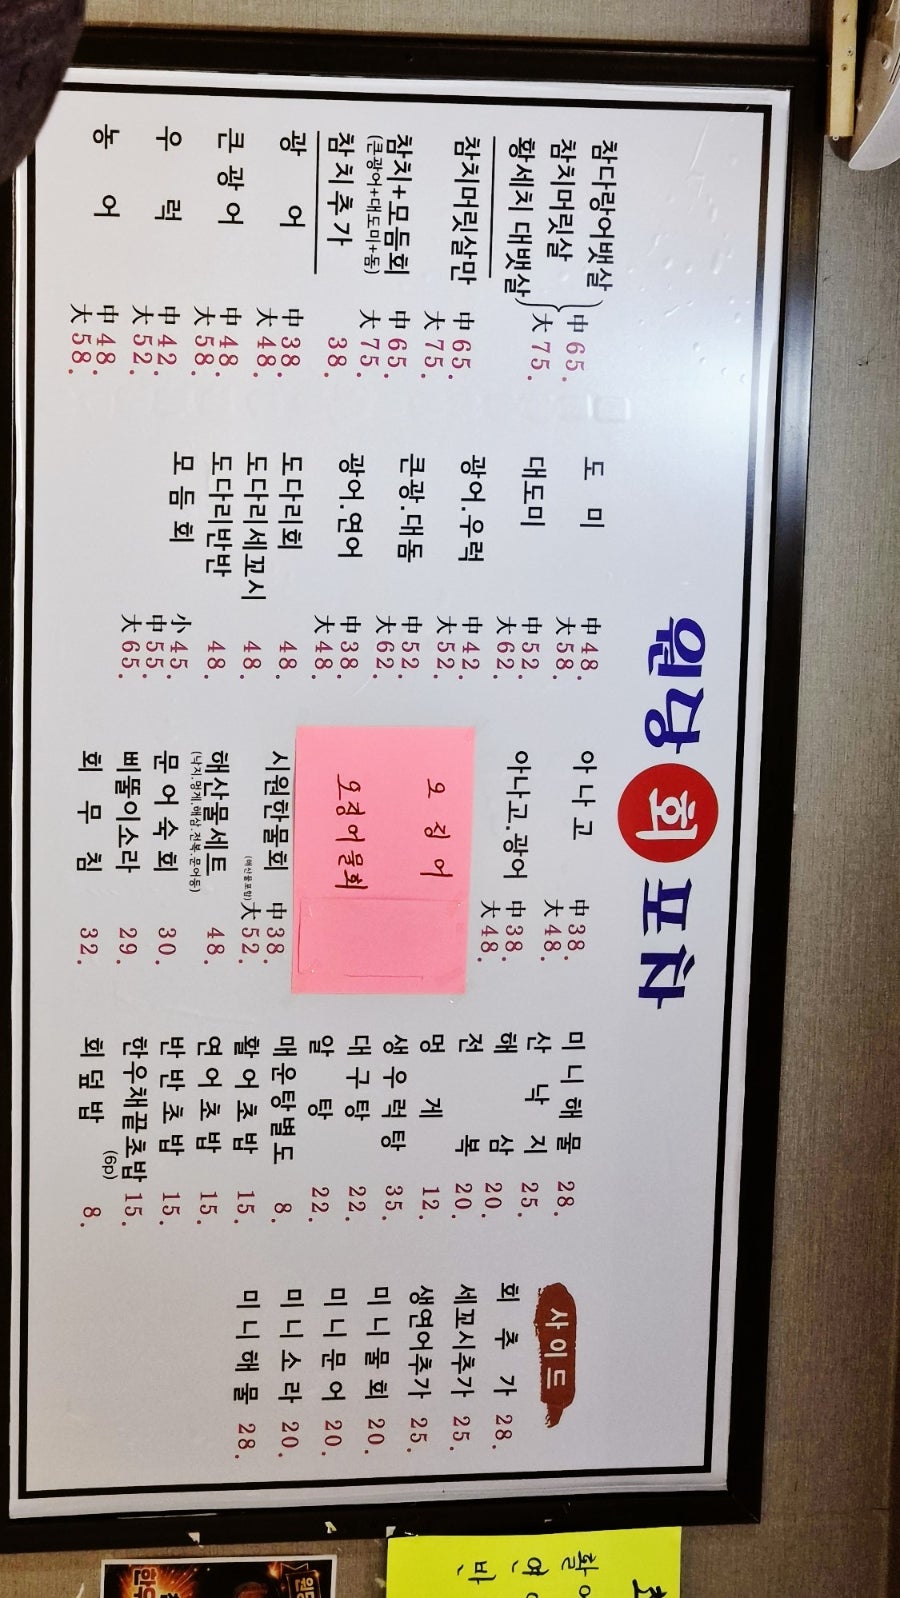 원당 회 포차
참다랑어뱃살
참치머릿살
황세치 대뱃살
中 65.
大 75.
참치머릿살만 中 65.
大 75.
참치+모듬회 中 65.
(큰광어+대도미+돔) 大 75.
참치추가 38.
광 어 中 38.
大 48.
큰 광 어 中 48.
大 58.
우 럭 中 42.
大 52.
농 어 中 48.
大 58.
도 미 中 48.
大 58.
대도미 中 52.
大 62.
광어.우럭 中 42.
大 52.
큰광.대돔 中 52.
大 62.
광어.연어 中 38.
大 48.
도다리회 48.
도다리세꼬시 48.
도다리반반 48.
모 듬 회 小 45.
中 55.
大 65.
아 나 고 中 38.
大 48.
아나고.광어 中 38.
大 48.
오 징 어
오징어물회
시원한물회 中 38.
(해산물포함) 大 52.
해산물세트 48.
(낙지.멍게.해삼.전복.문어등)
문 어 숙 회 30.
삐뚤이소라 29.
회 무 침 32.
미 니 해 물 28.
산 낙 지 25.
해 삼 20.
전 복 20.
멍 게 12.
생 우 럭 탕 35.
대 구 탕 22.
알 탕 22.
매운탕별도 8.
활 어 초 밥 15.
연 어 초 밥 15.
반 반 초 밥 15.
한우채끝초밥 15.
(6p)
회 덮 밥 8.
사이드
회 추 가 28.
세꼬시추가 25.
생연어추가 25.
미 니 물 회 20.
미 니 문 어 20.
미 니 소 라 20.
미 니 해 물 28.